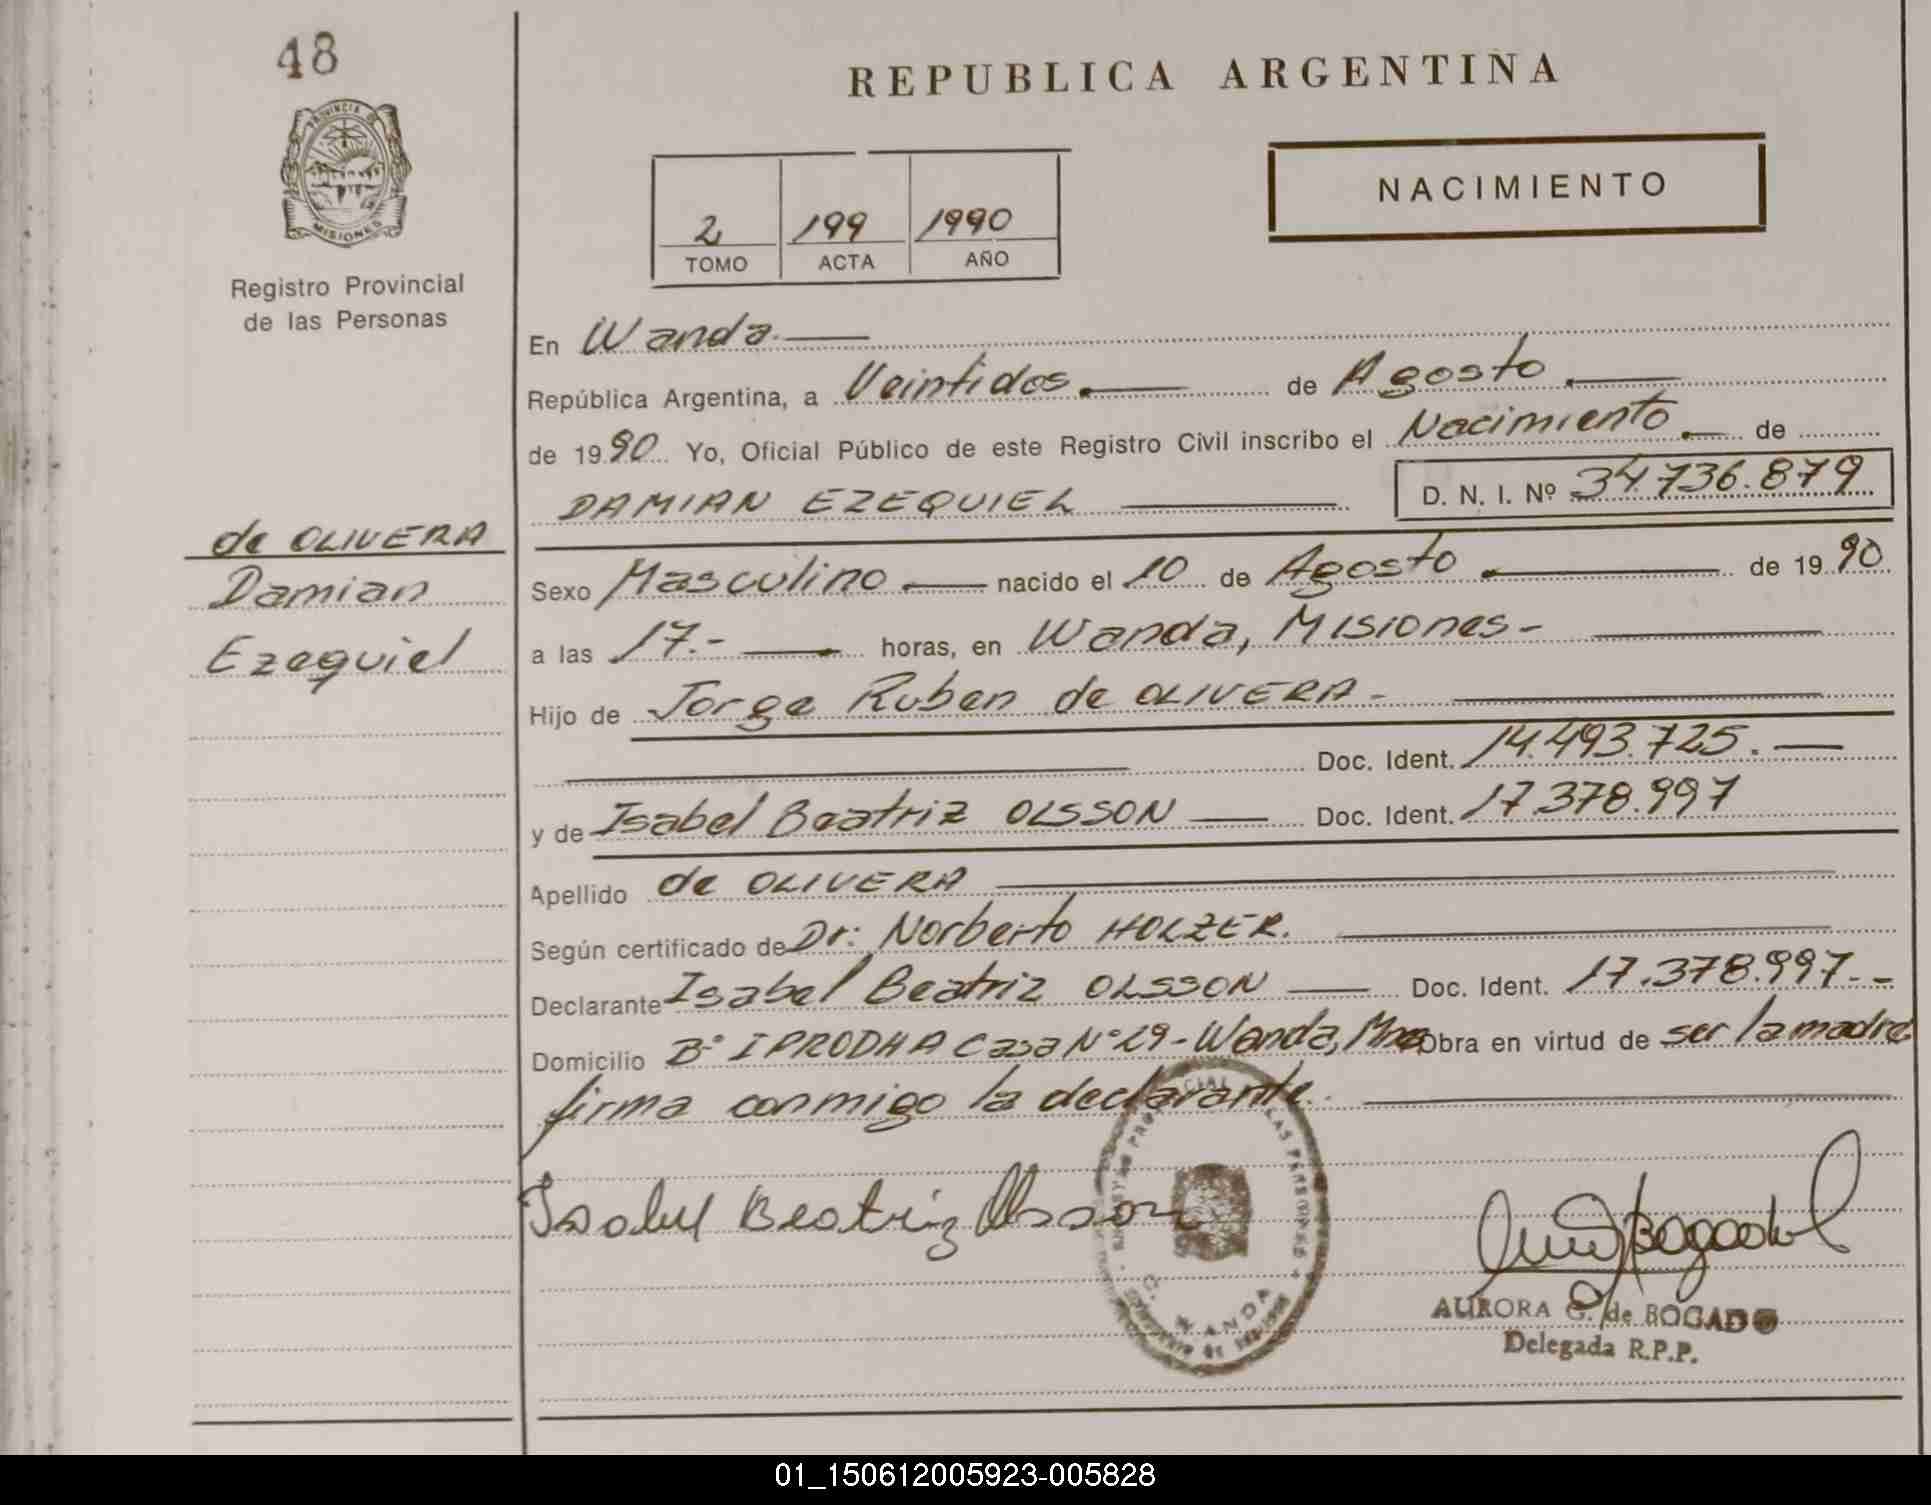 48
PROVINCIA DE
MISIONES
Registro Provincial
de las Personas
de OLIVERA
Damian
Ezequiel
REPUBLICA ARGENTINA
NACIMIENTO
2 199 1990
TOMO ACTA AÑO
En Wanda.
República Argentina, a Veintidos. de Agosto.
de 1990 Yo, Oficial Público de este Registro Civil inscribo el Nacimiento. de
DAMIAN EZEQUIEL D. N. I. Nº 34.736.879
Sexo Masculino nacido el 10 de Agosto de 1990
a las 17.- horas, en Wanda, Misiones-
Hijo de Jorge Ruben de OLIVERA-
Doc. Ident. 14.493.725.
y de Isabel Beatriz OLSSON Doc. Ident. 17.378.997
Apellido de OLIVERA
Según certificado de Dr: Norberto HOLZER.
Declarante Isabel Beatriz OLSSON Doc. Ident. 17.378.997.-
Domicilio Bº IPRODHA Casa Nº 29 - Wanda, Obra en virtud de ser la madre
firma conmigo la declarante.
Isabel Beatriz Olsson
AURORA G. de BOGADO
Delegada R.P.P.
01_150612005923-005828